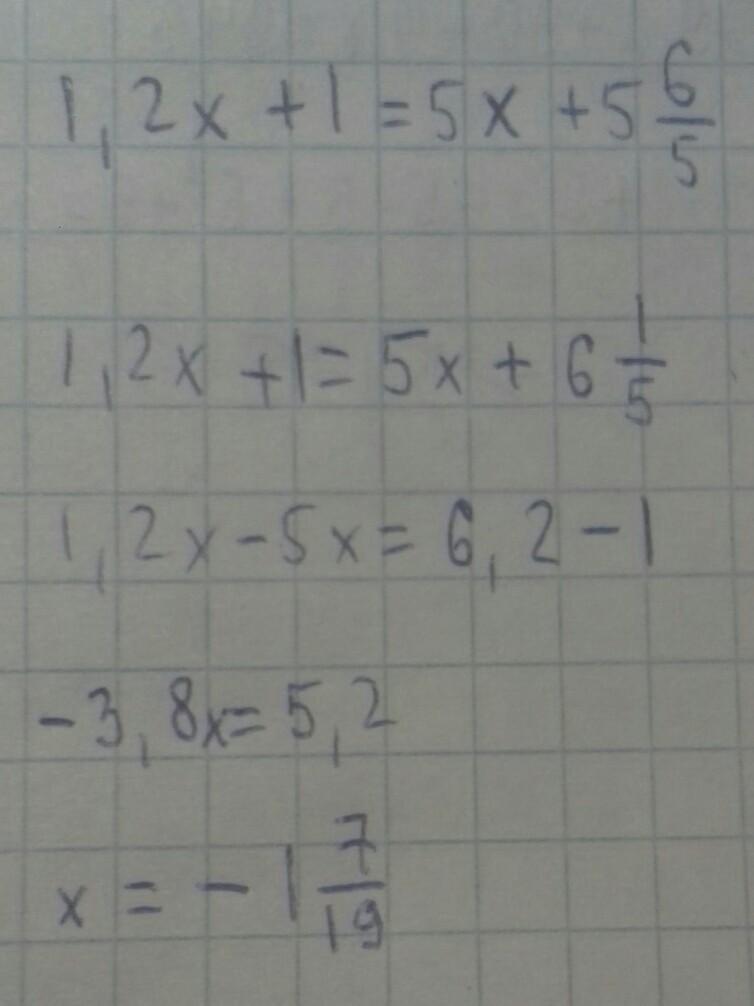 1,2x + 1 = 5x + 5 6/5
1,2x + 1 = 5x + 6 1/5
1,2x - 5x = 6,2 - 1
-3,8x = 5,2
x = -1 7/19